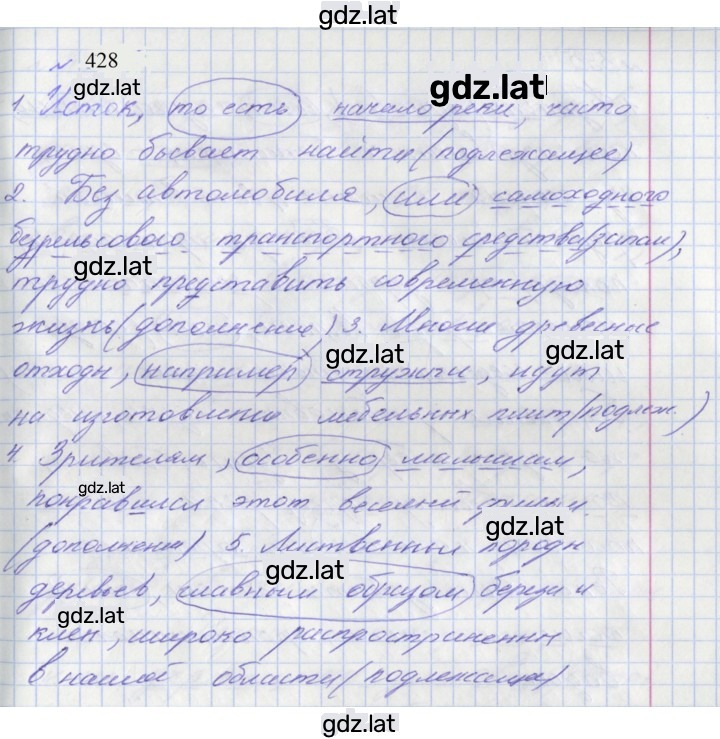 gdz.lat
№ 428
gdz.lat
gdz.lat
1. Исток, то есть начало реки, часто
трудно бывает найти (подлежащее)
2. Без автомобиля, или самоходного
безрельсового транспортного средства (запом),
gdz.lat
трудно представить современную
жизнь (дополнение) 3. Многие древесные
gdz.lat
gdz.lat
отходы, например стружки, идут
на изготовление мебельных плит (подлеж.)
4. Зрителям, особенно малышам,
gdz.lat
понравился этот веселый
gdz.lat
(дополнение) 5. Лиственные породы
gdz.lat
деревьев, главным образом береза и
gdz.lat
клен, широко распространены
в нашей области (подлежащее)
gdz.lat